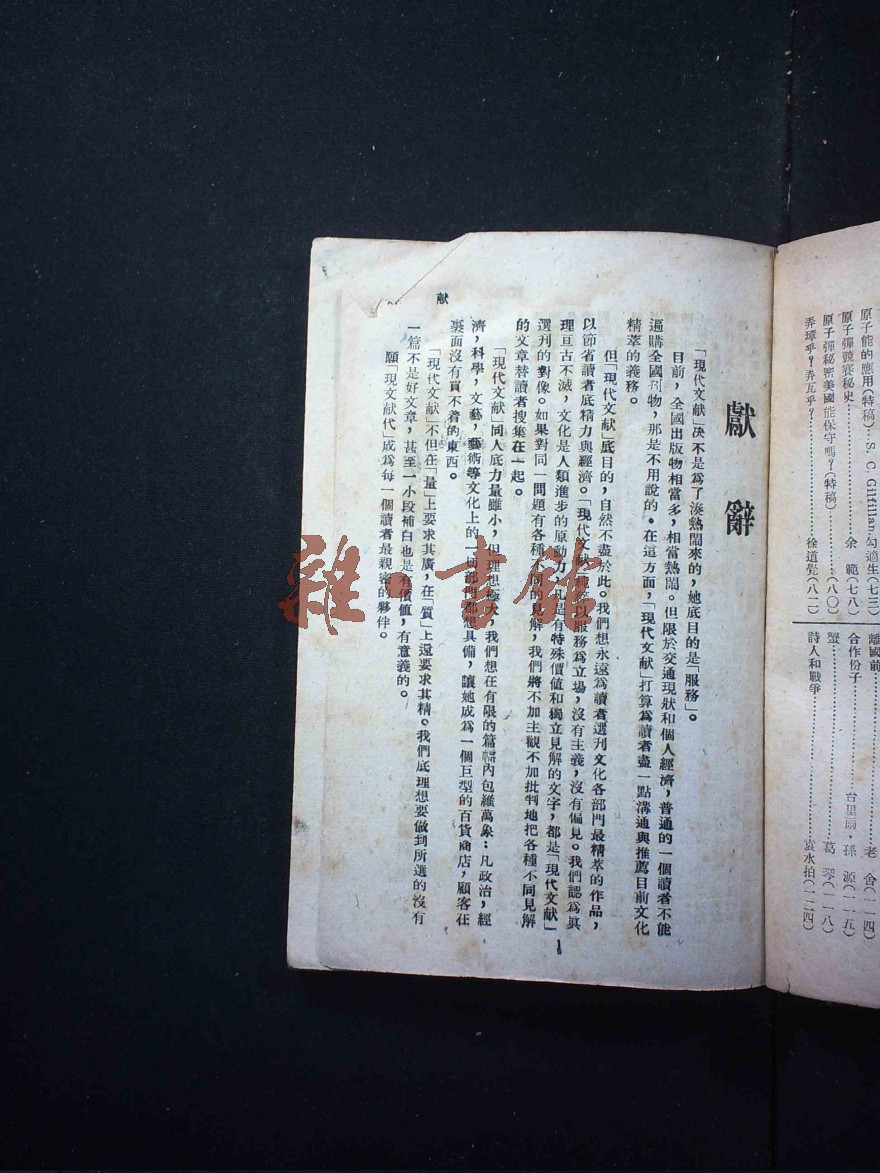 原子能的應用(特稿)…S. C. Gilfillan·勾適生(七三)
原子彈競賽秘史………余 範(七八)
原子彈秘密美國能保守嗎?(特稿)………(八〇)
弄璋乎?弄瓦乎?………徐道覺(八二)
離國前………老 舍(一一四)
合作份子………孫 源(一一五)
蟹………葛 琴(一一八)
詩人和戰爭………袁水拍(一二四)
獻辭
「現代文献」決不是爲了湊熱鬧來的,她底目的是「服務」。
目前,全國出版物相當多,相當熱鬧。但限於交通現狀和個人經濟,普通的一個讀者不能
遍購全國刊物,那是不用說的。在這方面,「現代文献」打算爲讀者盡一點溝通與推薦目前文化
精萃的義務。
但「現代文献」底目的,自然不盡於此。我們想永遠爲讀者選刊文化各部門最精萃的作品,
以節省讀者底精力與經濟。「現代文献」純然以服務爲立場,沒有主義,沒有偏見。我們認爲真
理亘古不滅,文化是人類進步的原動力,凡是有特殊價値和獨立見解的文字,都是「現代文献」
選刊的對像。如果對同一問題有各種不同的見解,我們將不加主觀不加批判地把各種不同見解
的文章替讀者搜集在一起。
「現代文献」同人底力量雖小,但理想極大,我們想在有限的篇幅內包羅萬象:凡政治,經
濟,科學,文藝,藝術等文化上的一切部門都想具備,讓她成爲一個巨型的百貨商店,顧客在
裏面沒有買不着的東西。
「現代文献」不但在「量」上要求其廣,在「質」上還要求其精。我們底理想要做到所選的沒有
一篇不是好文章,甚至一小段補白也是有價值,有意義的。
願「現文献代」成爲每一個讀者最親密的夥伴。
献
雜·書館